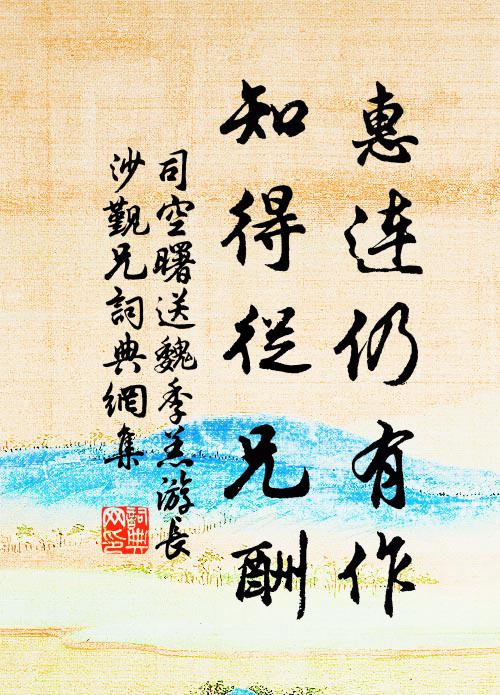 惠連仍有作
知得從兄酬
司空曙送魏季羔游長
沙覲兄詞典網集
詞典
网印